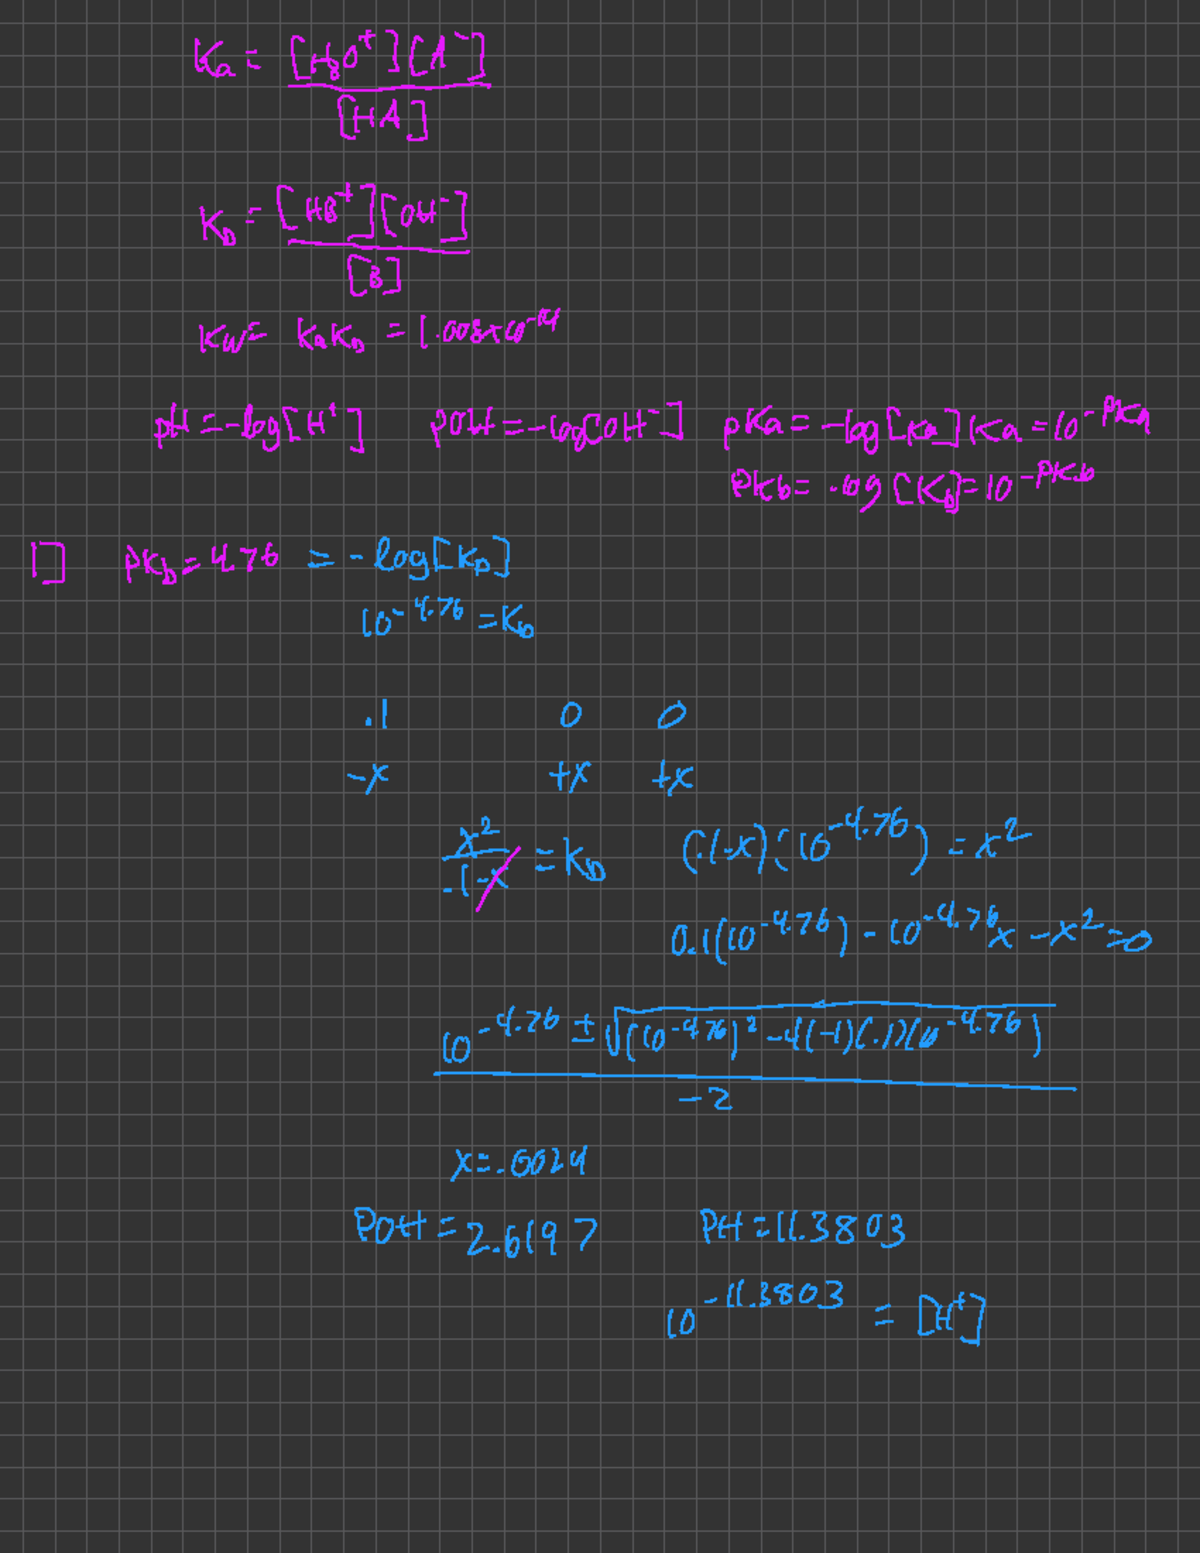 Ka = [H3O+][A-]
[HA]
Kb = [HB+][OH-]
[B]
Kw = KaKb = 1.008x10-14
pH = -log[H+] POH = -log[OH-] pKa = -log[Ka] Ka = 10-PKa
PKb = -log[Kb] = 10-PKb
PKb = 4.76 = -log[Kb]
10-4.76 = Kb
.1 0 0
-x +x +x
x2
.1-x = Kb (.1-x)(10-4.76) = x2
0.1(10-4.76) - 10-4.76x - x2 = 0
10-4.76 ± √((10-4.76)2 - 4(-1)(.1)(10-4.76)
-2
x = .0024
POH = 2.6197 PH = 11.3803
10-11.3803 = [H+]